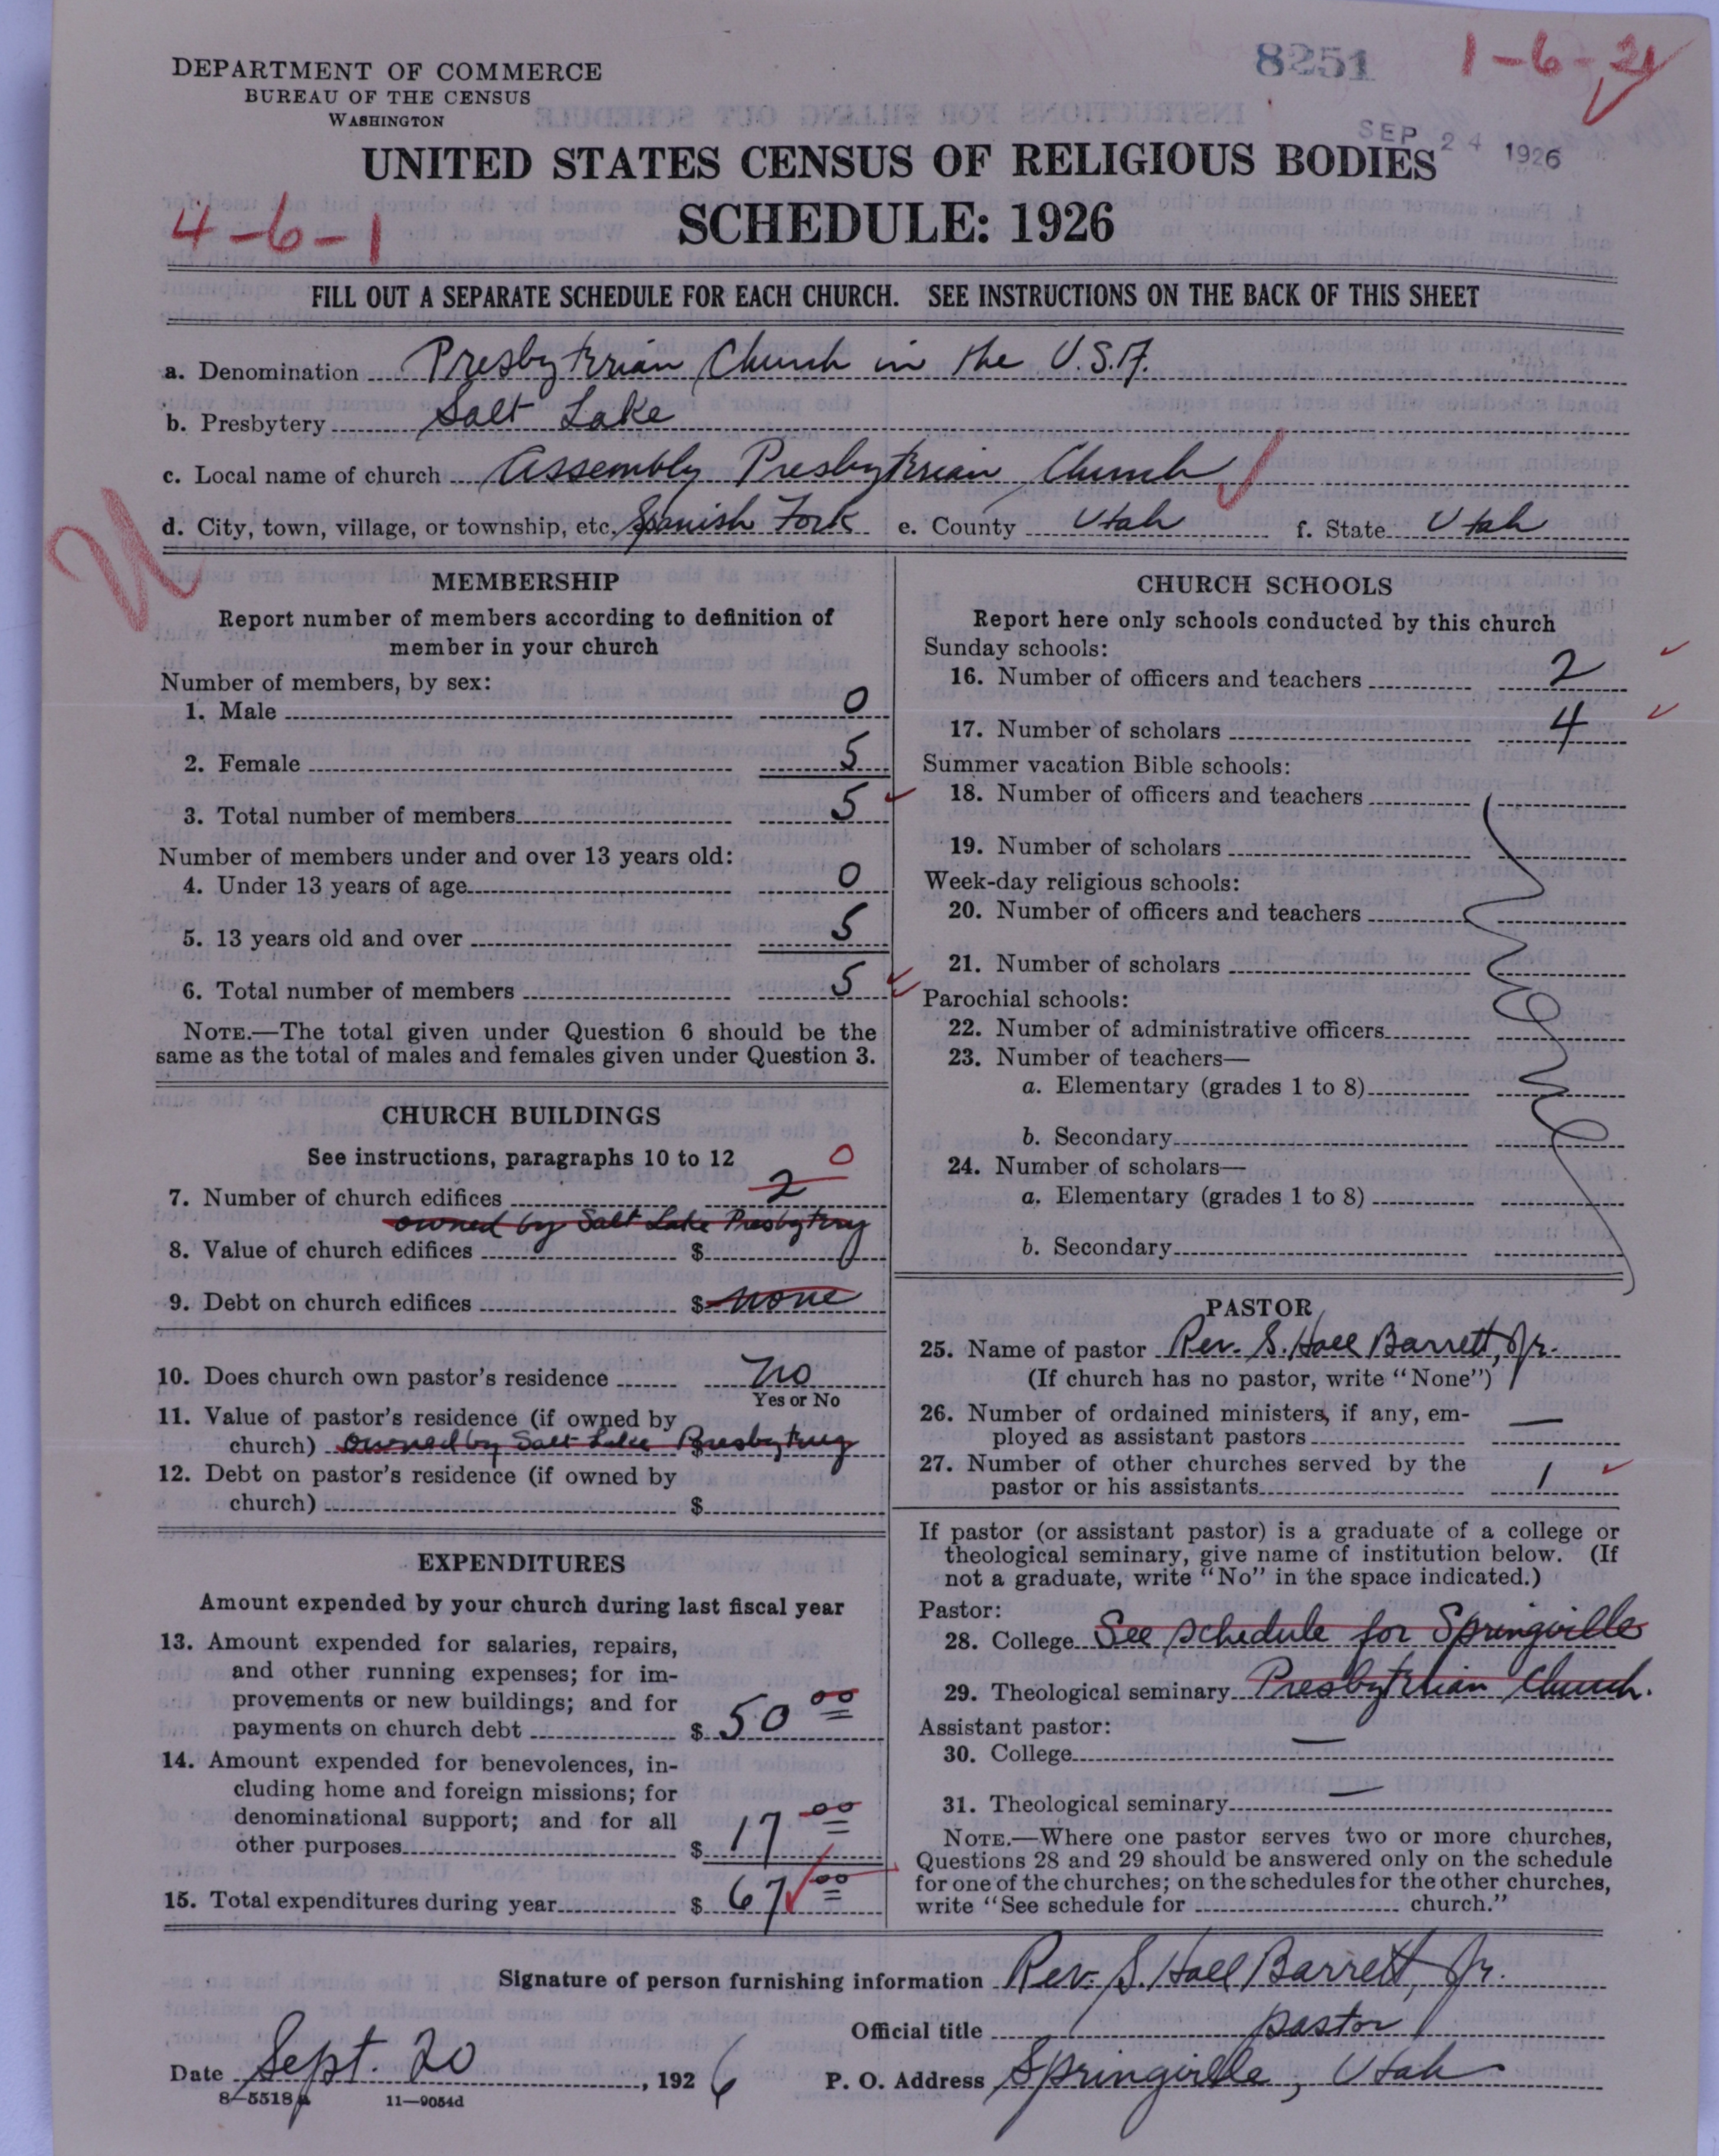 8251
1-6-21
DEPARTMENT OF COMMERCE
BUREAU OF THE CENSUS
WASHINGTON
SEP 24 1926
UNITED STATES CENSUS OF RELIGIOUS BODIES
4-6-1
SCHEDULE: 1926
FILL OUT A SEPARATE SCHEDULE FOR EACH CHURCH. SEE INSTRUCTIONS ON THE BACK OF THIS SHEET
a. Denomination Presbyterian Church in the U.S.A.
b. Presbytery Salt Lake
c. Local name of church Assembly Presbyterian Church
d. City, town, village, or township, etc. Spanish Fork e. County Utah f. State Utah
MEMBERSHIP
Report number of members according to definition of
member in your church
Number of members, by sex:
1. Male 0
2. Female 5
3. Total number of members 5
Number of members under and over 13 years old:
4. Under 13 years of age 0
5. 13 years old and over 5
6. Total number of members 5
NOTE.—The total given under Question 6 should be the
same as the total of males and females given under Question 3.
CHURCH BUILDINGS
See instructions, paragraphs 10 to 12 0
7. Number of church edifices 2
owned by Salt Lake Presbytery
8. Value of church edifices $
9. Debt on church edifices $ none
10. Does church own pastor's residence no
Yes or No
11. Value of pastor's residence (if owned by
church) owned by Salt Lake Presbytery $
12. Debt on pastor's residence (if owned by
church) $
EXPENDITURES
Amount expended by your church during last fiscal year
13. Amount expended for salaries, repairs,
and other running expenses; for im-
provements or new buildings; and for
payments on church debt $ 50 00
14. Amount expended for benevolences, in-
cluding home and foreign missions; for
denominational support; and for all
other purposes $ 17 00
15. Total expenditures during year $ 67 00
CHURCH SCHOOLS
Report here only schools conducted by this church
Sunday schools:
16. Number of officers and teachers 2
17. Number of scholars 4
Summer vacation Bible schools:
18. Number of officers and teachers
19. Number of scholars
Week-day religious schools:
20. Number of officers and teachers
21. Number of scholars
Parochial schools:
22. Number of administrative officers
23. Number of teachers—
a. Elementary (grades 1 to 8)
b. Secondary
24. Number of scholars—
a. Elementary (grades 1 to 8)
b. Secondary
PASTOR
25. Name of pastor Rev. S. Hall Barrett, Jr.
(If church has no pastor, write "None")
26. Number of ordained ministers, if any, em-
ployed as assistant pastors —
27. Number of other churches served by the
pastor or his assistants 1
If pastor (or assistant pastor) is a graduate of a college or
theological seminary, give name of institution below. (If
not a graduate, write "No" in the space indicated.)
Pastor:
28. College See schedule for Springville
29. Theological seminary Presbyterian Church.
Assistant pastor:
30. College —
31. Theological seminary —
NOTE.—Where one pastor serves two or more churches,
Questions 28 and 29 should be answered only on the schedule
for one of the churches; on the schedules for the other churches,
write "See schedule for church."
Signature of person furnishing information Rev. S. Hall Barrett, Jr.
Official title pastor
Date Sept. 20, 1926 P. O. Address Springville, Utah
8—5518a 11—9054d